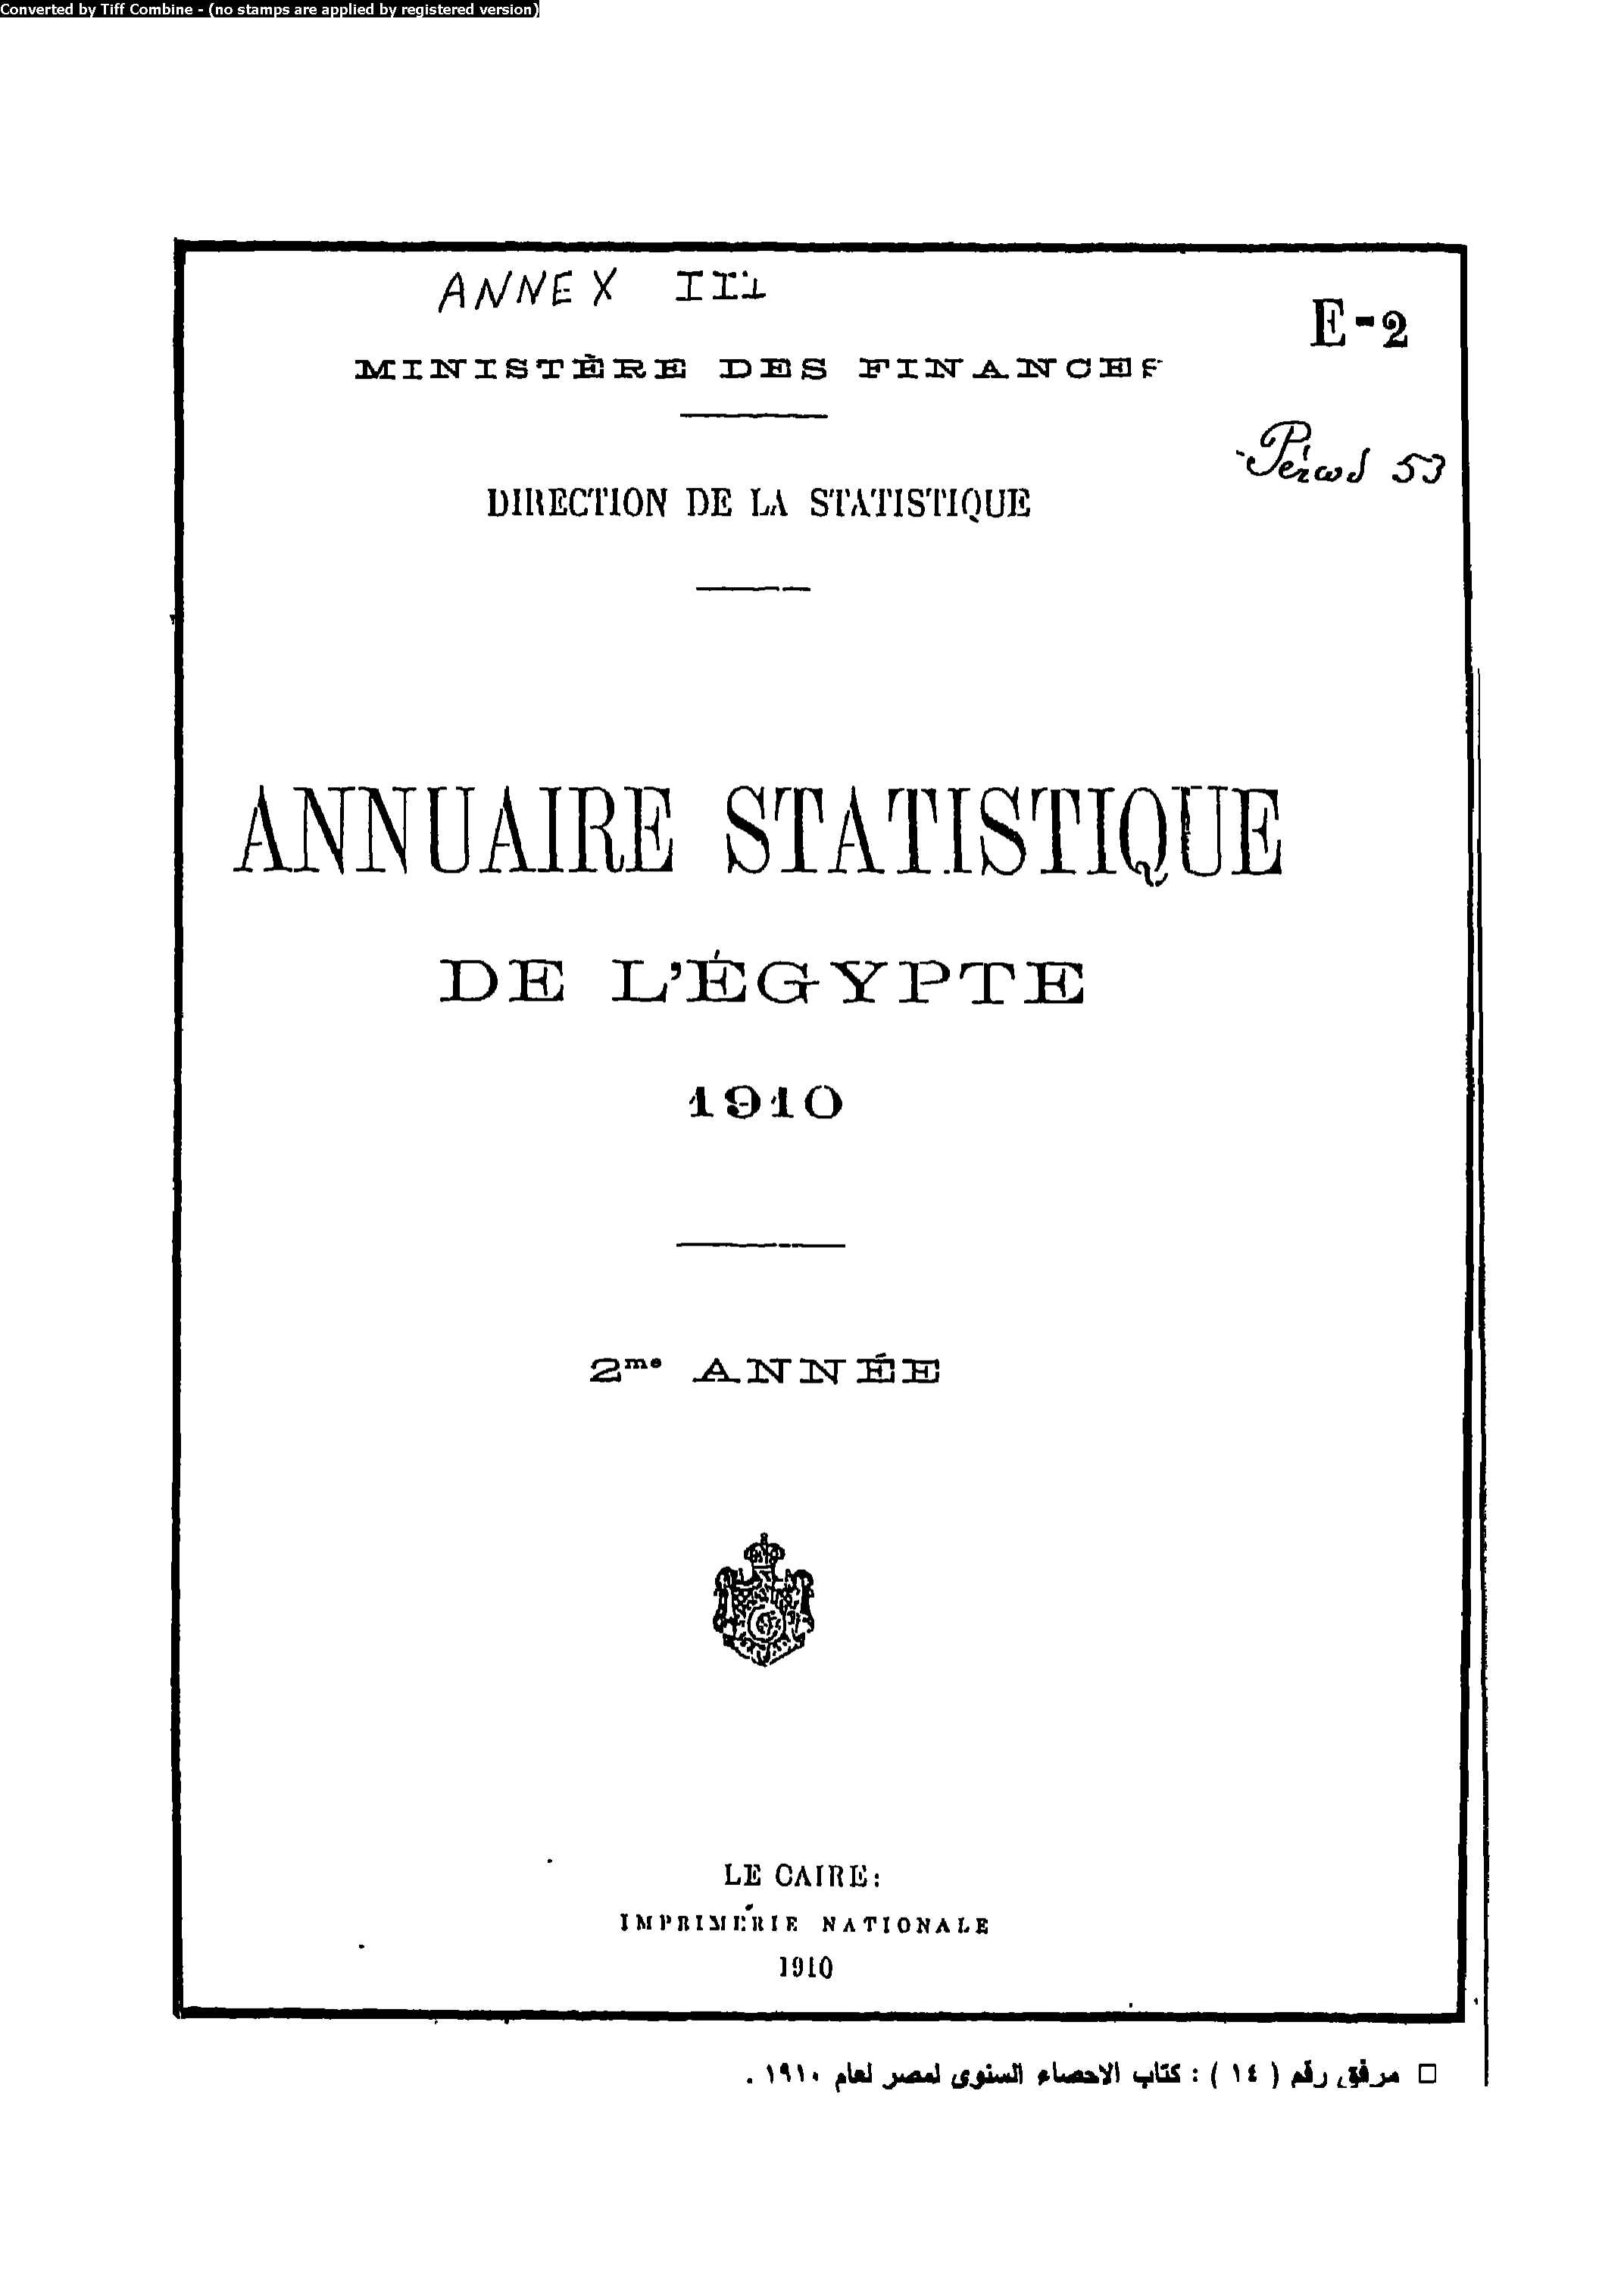 Converted by Tiff Combine - (no stamps are applied by registered version)
ANNEX III
E-2
MINISTÈRE DES FINANCES
53
DIRECTION DE LA STATISTIQUE
ANNUAIRE STATISTIQUE
DE L'ÉGYPTE
1910
2me ANNÉE
LE CAIRE:
IMPRIMERIE NATIONALE
1910
□ مرفق رقم ( ١٤ ) : كتاب الاحصاء السنوى لمصر لعام ١٩١٠ .